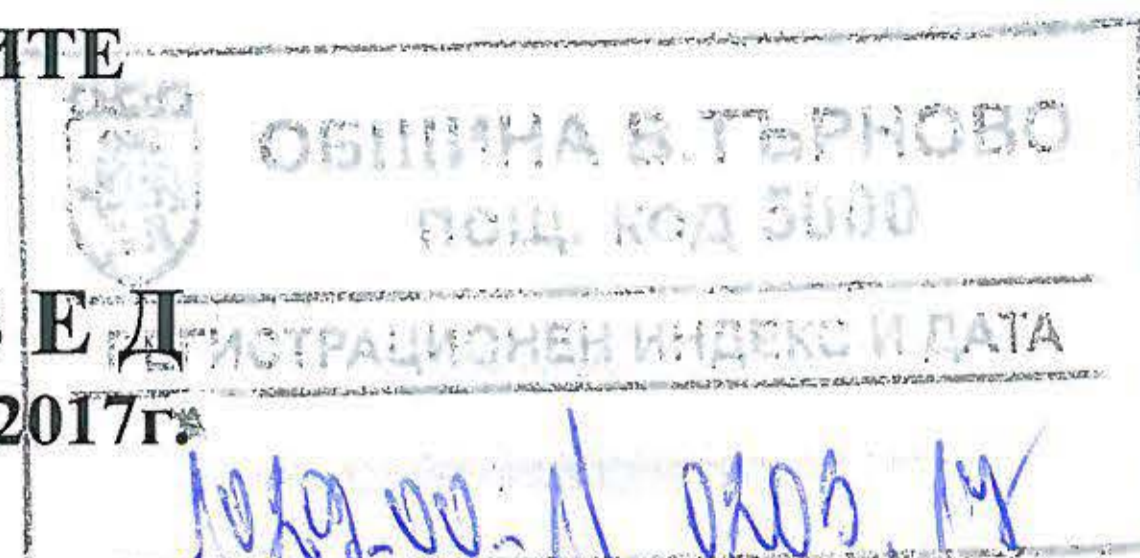 ИТЕ
ОБЩИНА В.ТЪРНОВО
ПОЩ. КОД 5000
ЕД
РЕГИСТРАЦИОНЕН ИНДЕКС И ДАТА
2017г.